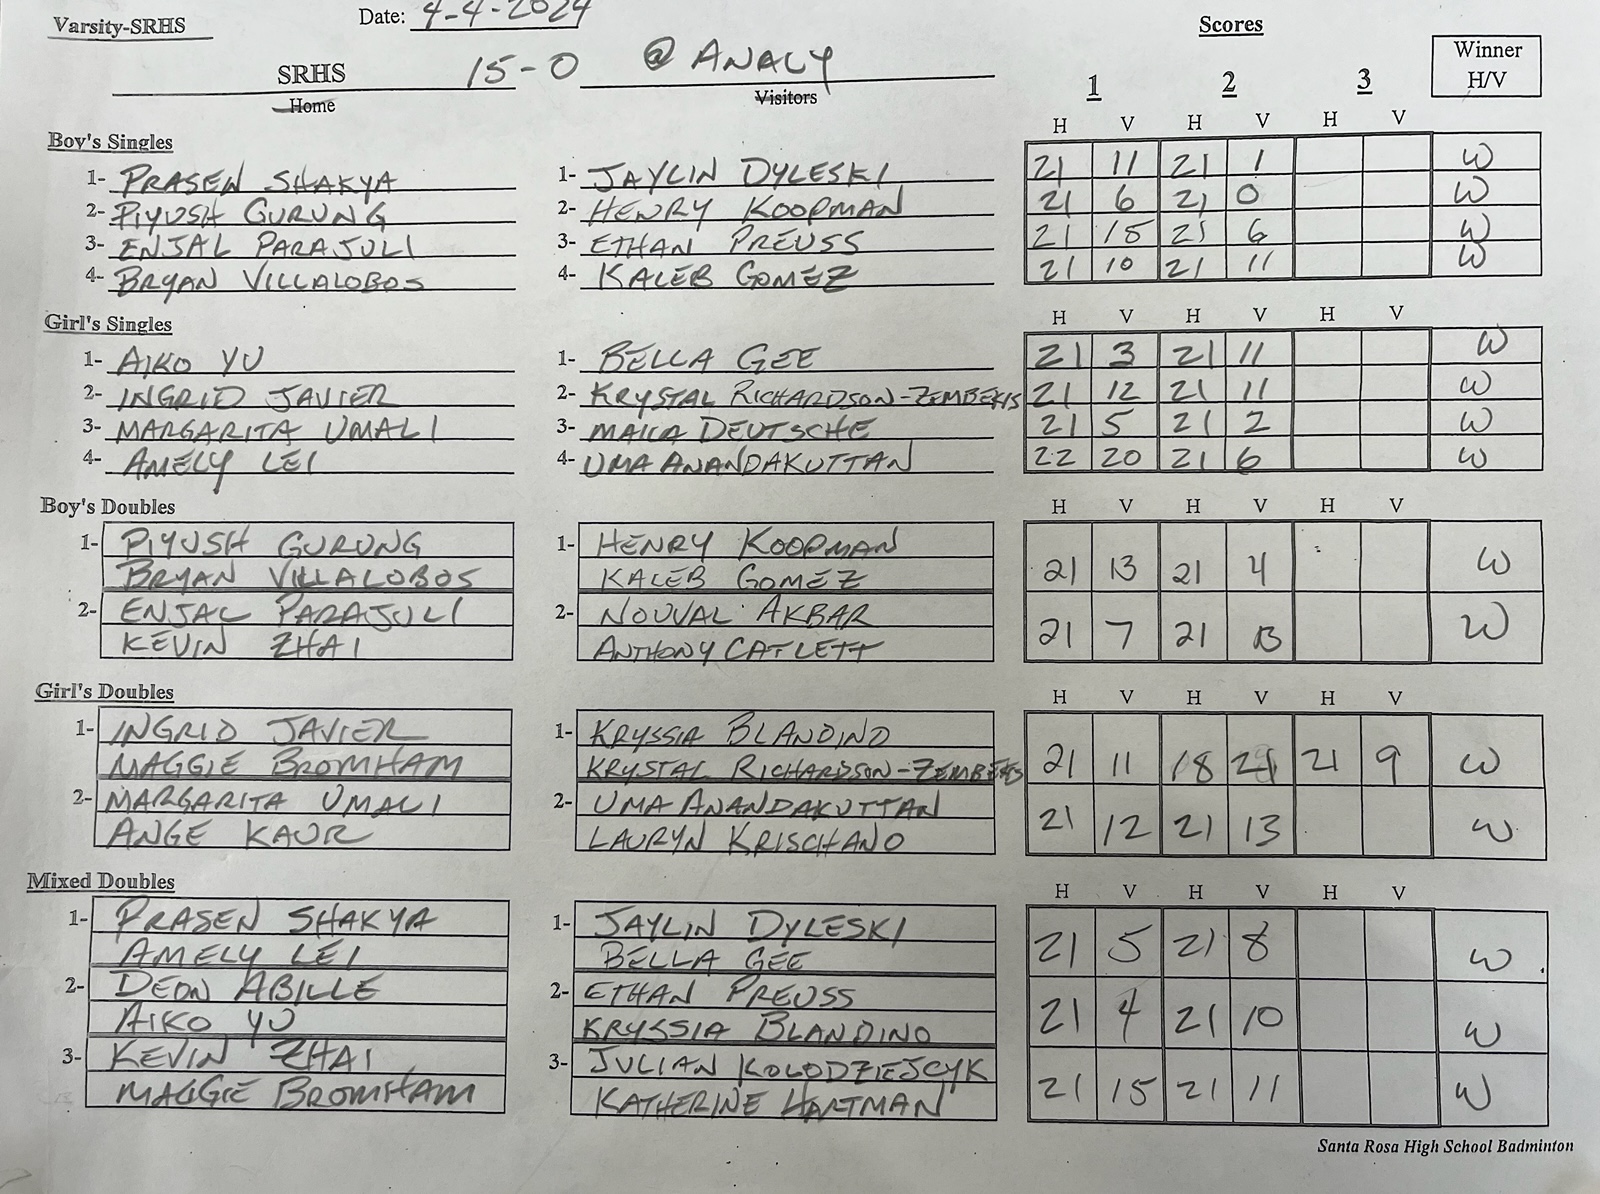 Varsity-SRHS Date: 4-4-2024 Scores
SRHS 15-0 @ ANALY Winner
Home Visitors 1 2 3 H/V
H V H V H V
Boy's Singles
1- PRASEN SHAKYA 1- JAYLIN DYLESKI 21 11 21 1 W
2- PIYUSH GURUNG 2- HENRY KOOPMAN 21 6 21 0 W
3- ENJAL PARAJULI 3- ETHAN PREUSS 21 15 21 6 W
4- BRYAN VILLALOBOS 4- KALEB GOMEZ 21 10 21 11 W
Girl's Singles H V H V H V
1- AIKO YU 1- BELLA GEE 21 3 21 11 W
2- INGRID JAVIER 2- KRYSTAL RICHARDSON-ZEMBEKIS 21 12 21 11 W
3- MARGARITA UMALI 3- DEUTSCHE 21 5 21 2 W
4- AMELY LEI 4- UMA ANANDAKUTTAN 22 20 21 6 W
Boy's Doubles H V H V H V
1- PIYUSH GURUNG 1- HENRY KOOPMAN
BRYAN VILLALOBOS KALEB GOMEZ 21 13 21 4 W
2- ENJAL PARAJULI 2- NOUVAL AKBAR
KEVIN ZHAI ANTHONY CATLETT 21 7 21 13 W
Girl's Doubles H V H V H V
1- INGRID JAVIER 1- KRYSSIA BLANDINO
MAGGIE BROMHAM KRYSTAL RICHARDSON-ZEMBEKIS 21 11 18 21 21 9 W
2- MARGARITA UMALI 2- UMA ANANDAKUTTAN
ANGE KAUR LAURYN KRISCHANO 21 12 21 13 W
Mixed Doubles H V H V H V
1- PRASEN SHAKYA 1- JAYLIN DYLESKI
AMELY LEI BELLA GEE 21 5 21 8 W
2- DEON ABILLE 2- ETHAN PREUSS
AIKO YU KRYSSIA BLANDINO 21 4 21 10 W
3- KEVIN ZHAI 3- JULIAN KOLODZIEJCYK
MAGGIE BROMHAM KATHERINE HARTMAN 21 15 21 11 W
Santa Rosa High School Badminton